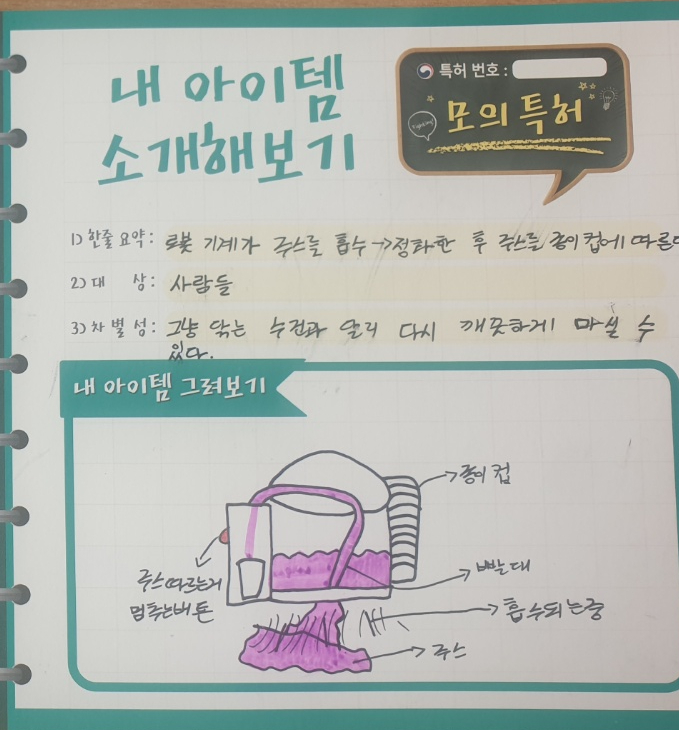 특허 번호 :
내 아이템
소개해보기
모의 특허
1) 한줄 요약 : 로봇 기계가 주스를 흡수→정화한 후 주스를 종이컵에 따른다
2) 대 상 : 사람들
3) 차 별 성 : 그냥 닦는 수건과 달리 다시 깨끗하게 마실 수
있다.
내 아이템 그려보기
종이컵
빨대
주스따르는거
멈추는버튼
흡수되는중
주스